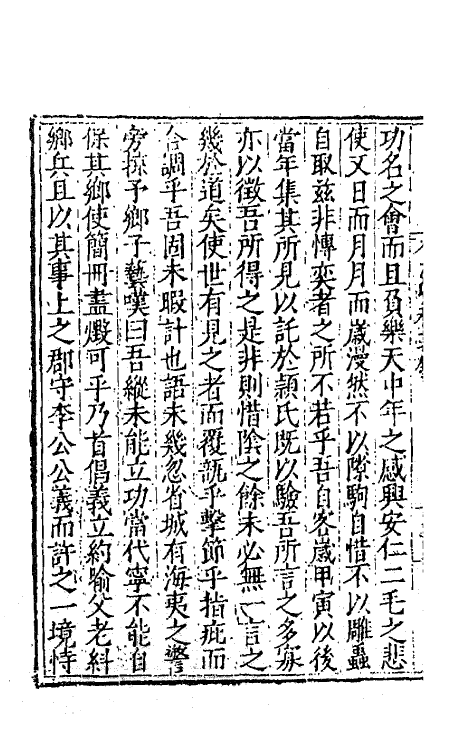 功名之會而且負樂天中年之感興安仁二毛之悲
使又日而月月而嵗漫然不以隙駒自惜不以雕蟲
自取兹非慱奕者之所不若乎吾自客嵗甲寅以後
當年集其所見以託於穎氏既以驗吾所言之多寡
亦以徴吾所得之是非則惜陰之餘未必無一言之
幾於道矣使世有見之者而覆瓿乎擊節乎指疵而
合調乎吾固未暇計也語未幾忽省城有海夷之警
旁掠予鄉子藝嘆曰吾縱未能立功當代寧不能自
保其鄉使簡冊盡燬可乎乃首倡義立約喻父老糾
鄉兵且以其事上之郡守李公公義而許之一境恃